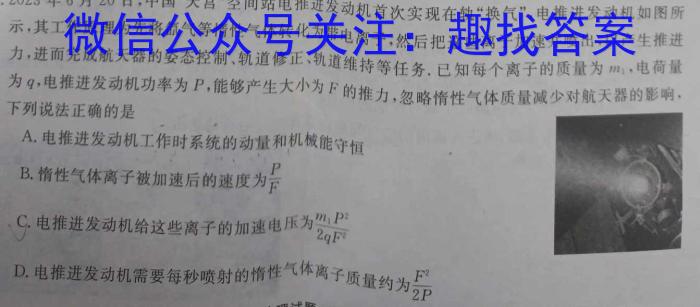 2023年6月20日,中国"天宫"空间站电推进发动机首次实现在轨"换气",电推进发动机如图所
示,其工
微信公众号关注：趣找答案
力,进而完成航天器的姿态控制、轨道修正、轨道维持等任务.已知每个离子的质量为m₁,电荷量
为q,电推进发动机功率为P,能够产生大小为F的推力,忽略惰性气体质量减少对航天器的影响,
下列说法正确的是
A.电推进发动机工作时系统的动量和机械能守恒
B.惰性气体离子被加速后的速度为P/F
C.电推进发动机给这些离子的加速电压为m₁P²/2qF²
D.电推进发动机需要每秒喷射的惰性气体离子质量约为F²/2P